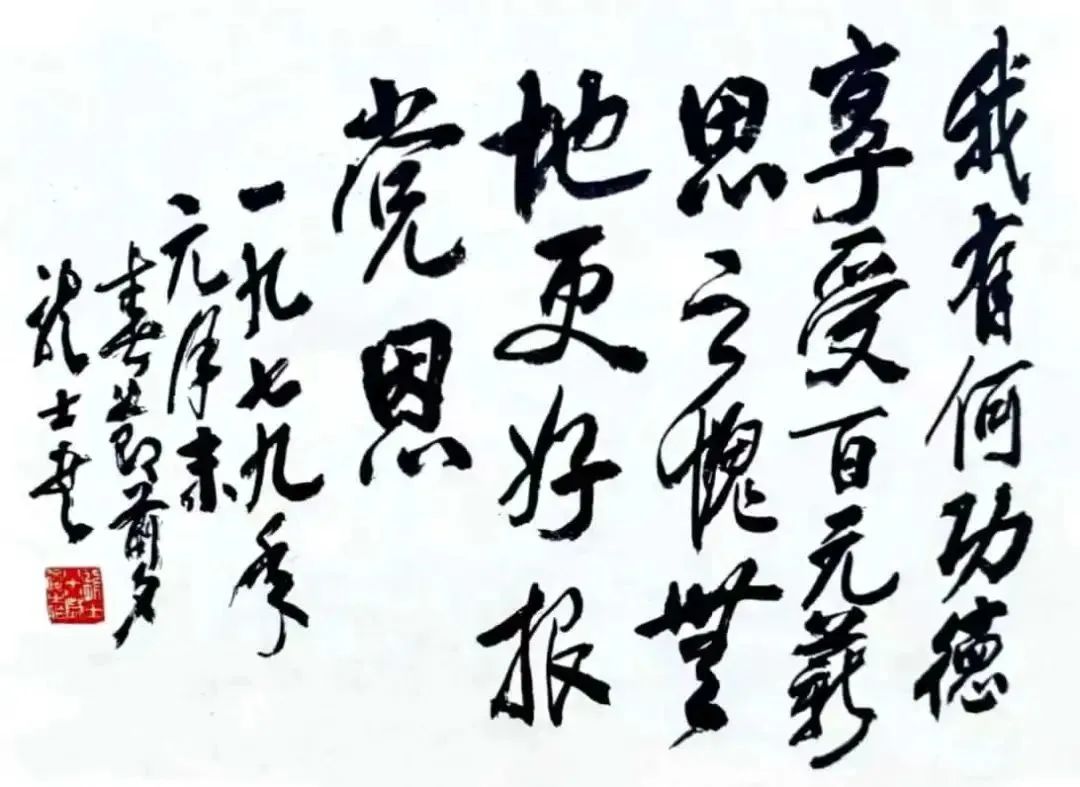 我有何功德
享受百元薪
思之愧無
地更好报
党恩
一九七九季
元月末
春節前夕
士